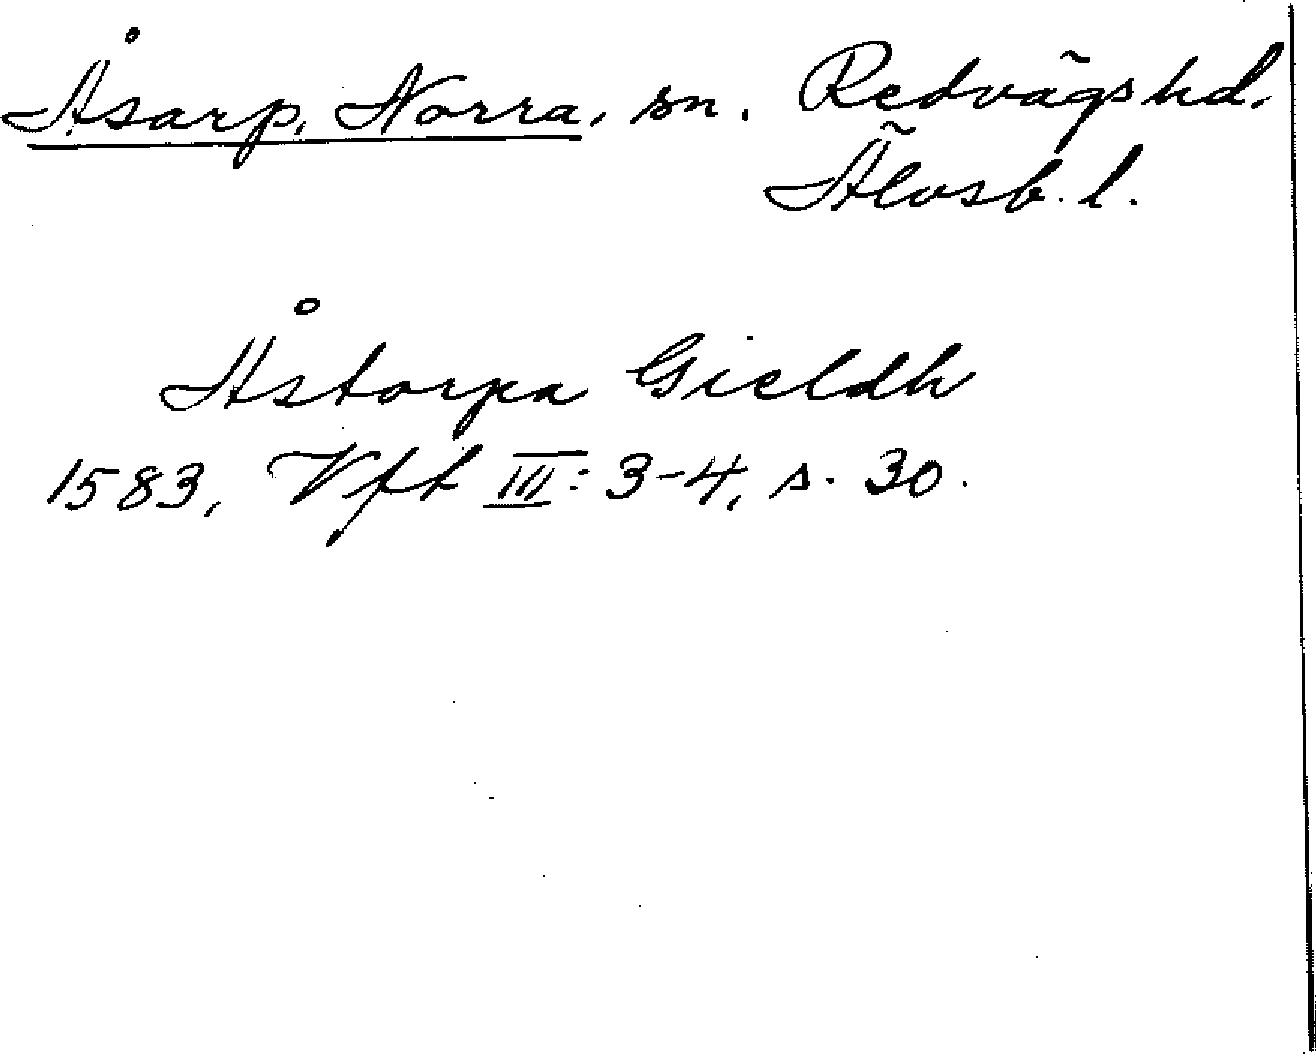 Åsarp, Norra, sn. Redvägs hd.
Älvsb. l.
Åstorpa Gieldh
1583, Vft III: 3-4, s. 30.